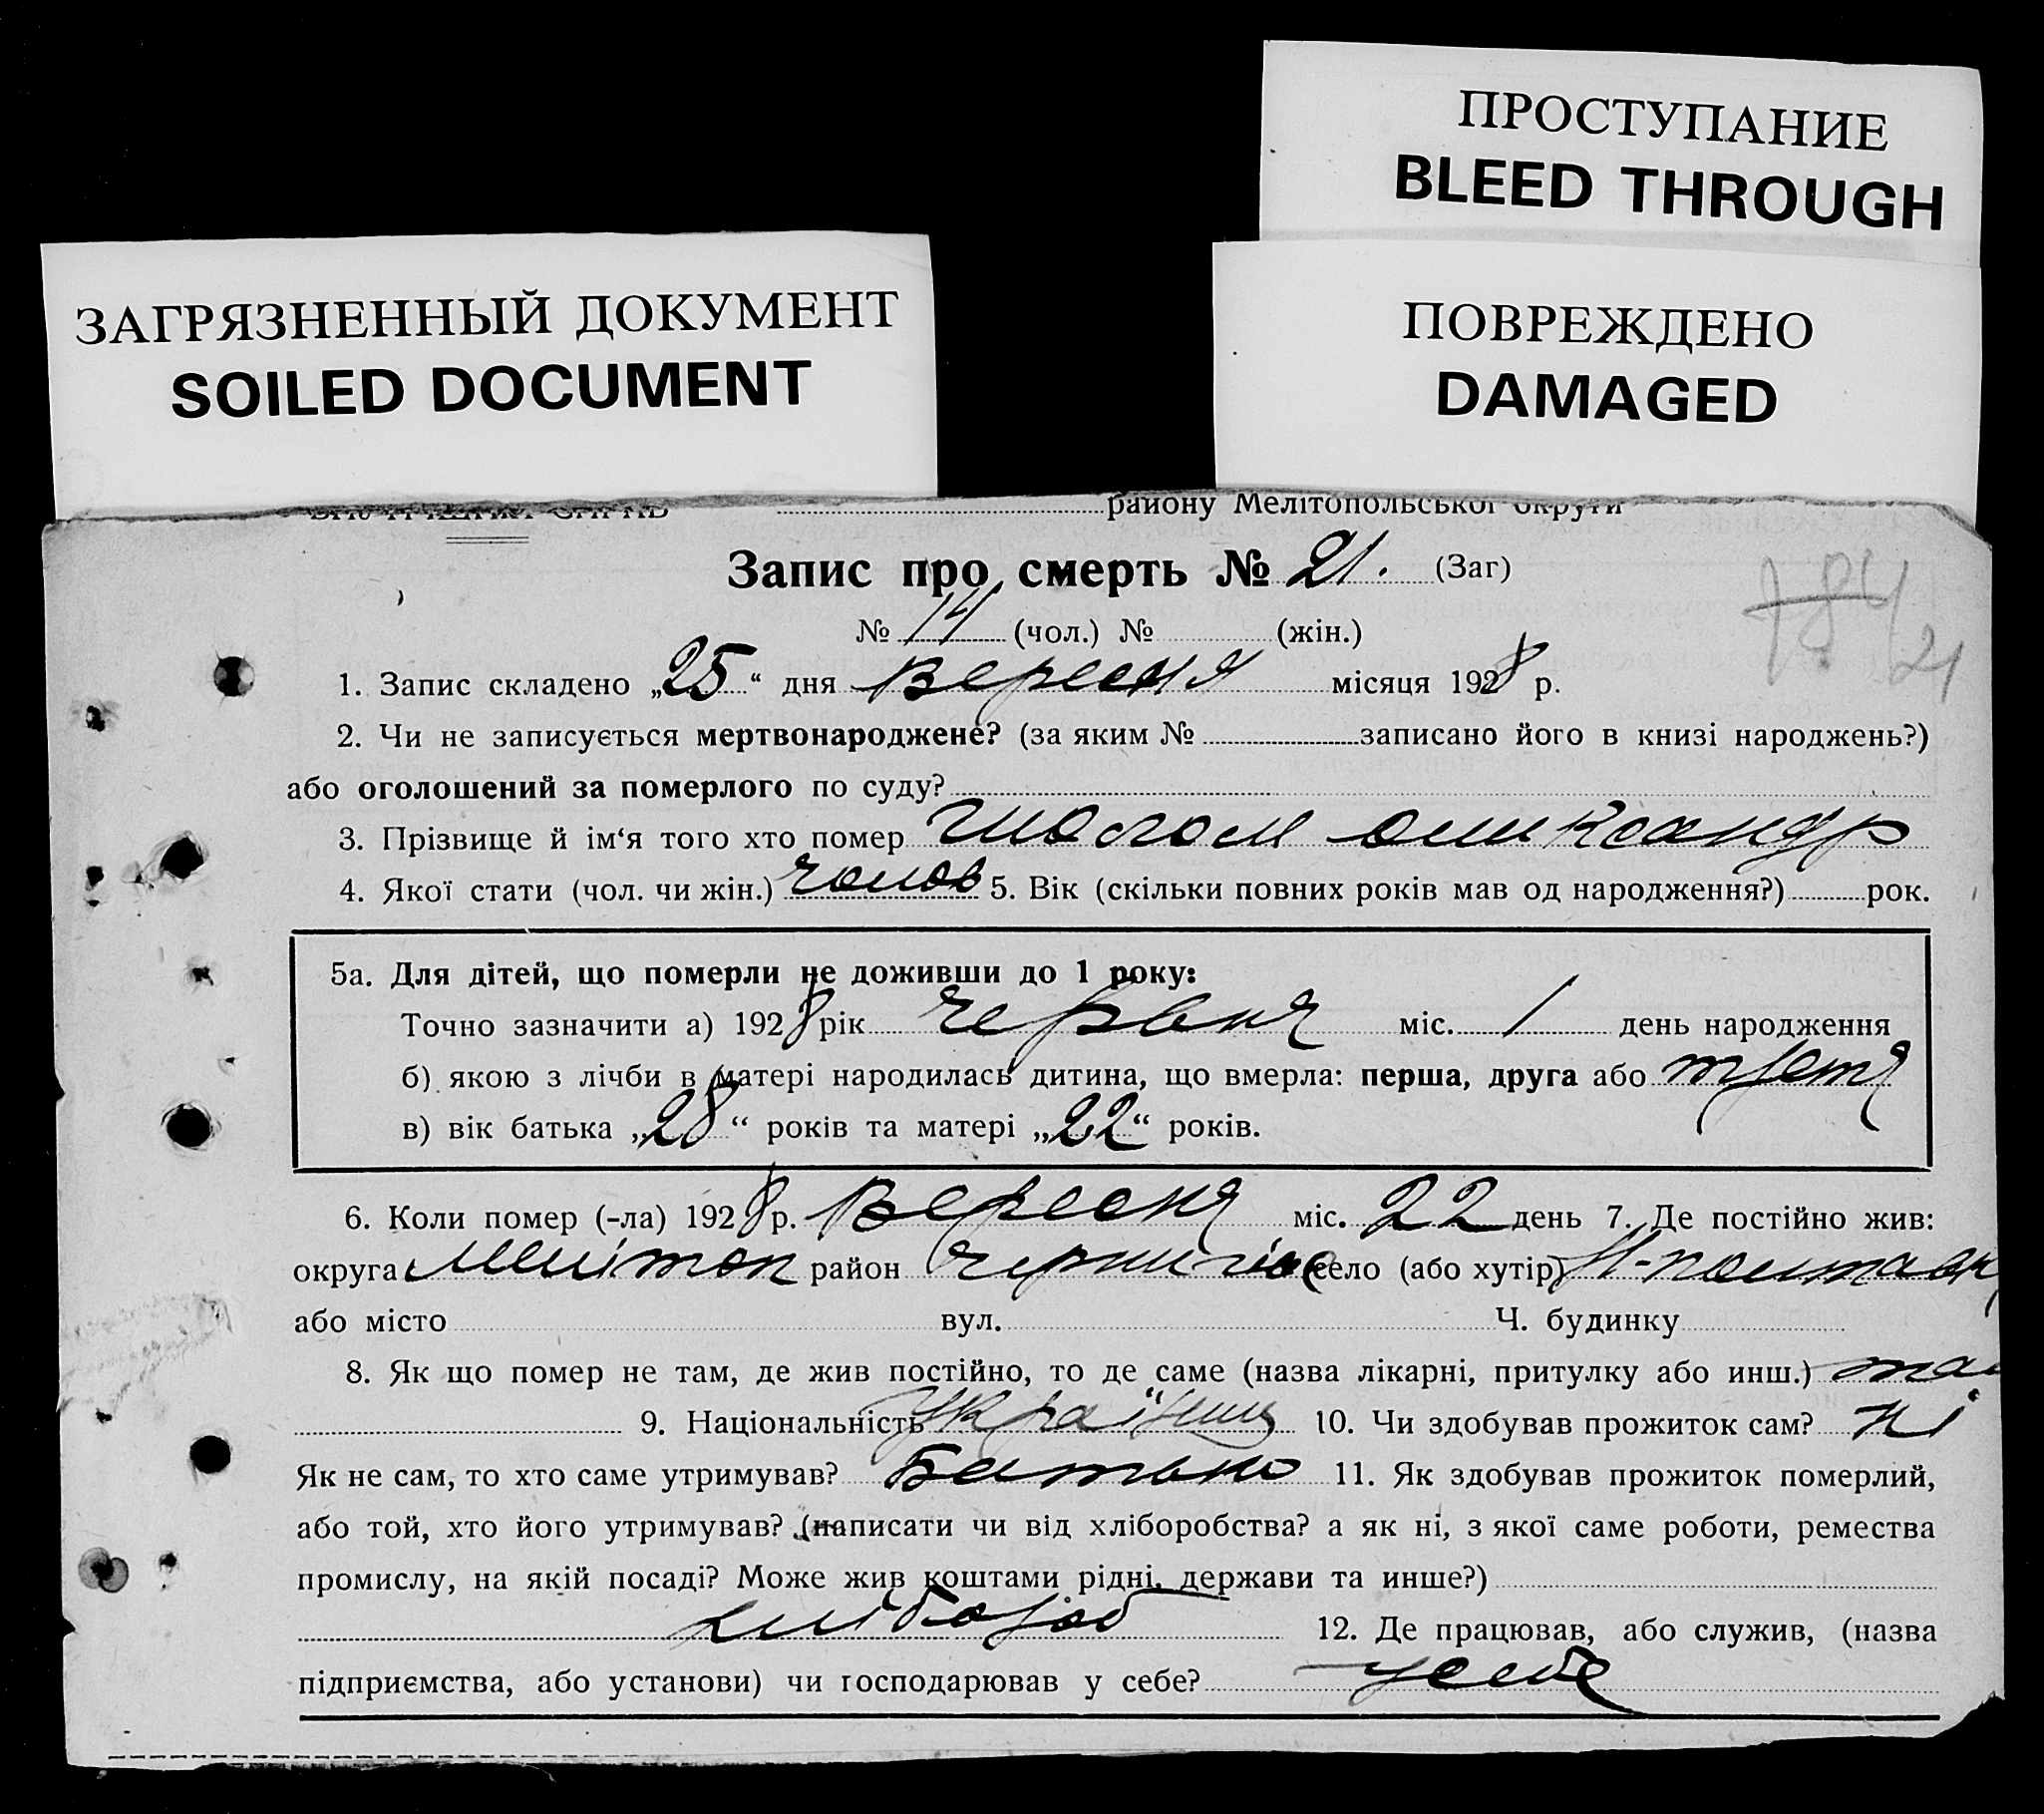 ПРОСТУПАНИЕ
BLEED THROUGH
ЗАГРЯЗНЕННЫЙ ДОКУМЕНТ
SOILED DOCUMENT
ПОВРЕЖДЕНО
DAMAGED
району Мелітопольської округи
Запис про смерть № 21. (Заг)
№ 14 (чол.) № (жін.)
1. Запис складено „25“ дня Вересня місяця 1928 р.
2. Чи не записується мертвонароджене? (за яким № записано його в книзі народжень?)
або оголошений за померлого по суду?
3. Прізвище й ім‘я того хто помер Шологом Олександр
4. Якої стати (чол. чи жін.) чолов 5. Вік (скільки повних років мав од народження?) рок.
5а. Для дітей, що померли не доживши до 1 року:
Точно зазначити а) 1928 рік червня міс. 1 день народження
б) якою з лічби в матері народилась дитина, що вмерла: перша, друга або третя
в) вік батька „28“ років та матері „22“ років.
6. Коли помер (-ла) 1928 р. Вересня міс. 22 день 7. Де постійно жив:
округа Мелітоп район Чернигів село (або хутір) Н-полтавк
або місто вул. Ч. будинку
8. Як що помер не там, де жив постійно, то де саме (назва лікарні, притулку або инш.) там
9. Національність Українц 10. Чи здобував прожиток сам? ні
Як не сам, то хто саме утримував? Батько 11. Як здобував прожиток померлий,
або той, хто його утримував? (написати чи від хліборобства? а як ні, з якої саме роботи, ремества
промислу, на якій посаді? Може жив коштами рідні, держави та инше?)
хлібороб 12. Де працював, або служив, (назва
підприємства, або установи) чи господарював у себе? усебе